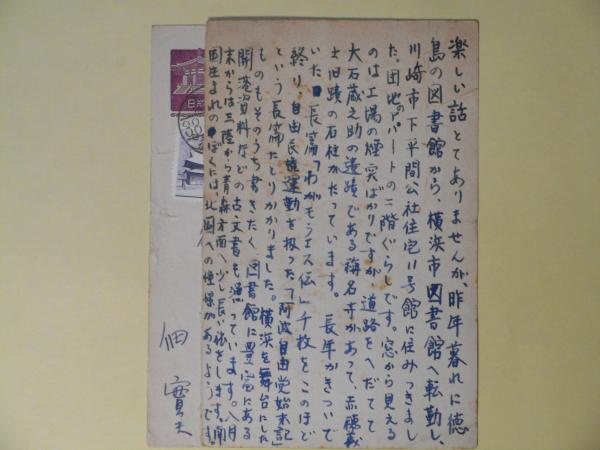 楽しい話とてありませんが、昨年暮れに徳
島の図書館から、横浜市図書館へ転勤し、
川崎市下平間公社住宅11号館に住みつきまし
た。団地のアパートの二階ぐらしです。窓から見える
のは工場の煙突ばかりですが、道路をへだてて
大石蔵之助の遺蹟である稱名寺があって、赤穂義
士旧蹟の石柱がたっています。長年かきついで
いた長篇「わがモラエス伝」千枚をこのほど
終り、自由民権運動を扱った「阿波自由党始末記」
という長篇にとりかかりました。横浜を舞台にした
ものもそのうち書きたく、図書館に豊富にある
開港資料などの古文書も漁っています。八月
末からは三陸から青森方面へ少し長い旅をします。南
国生まれのぼくには、北国への憧憬があるようです。
佃 實夫
日本